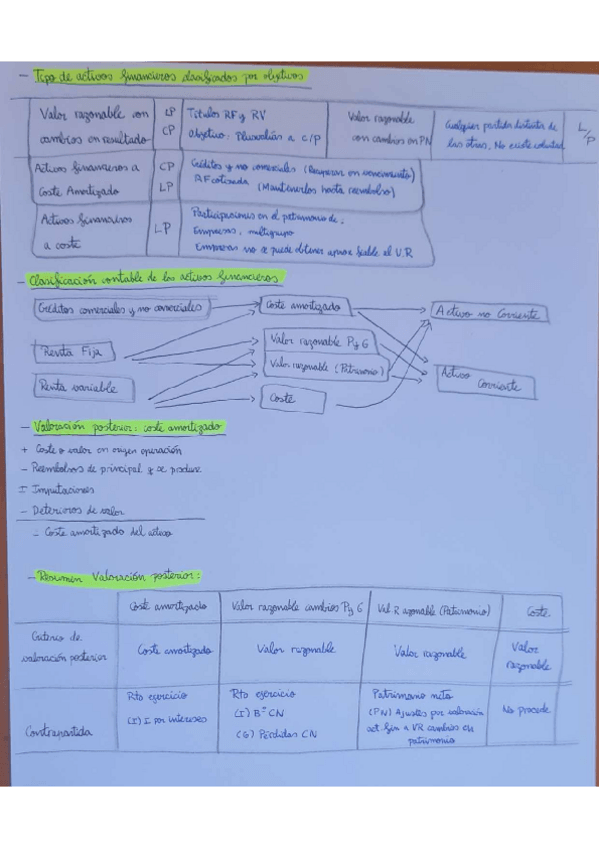 - Tipo de activos financieros clasificados por objetivos
Valor razonable con cambios en resultado
LP
CP
Títulos RF y RV
Objetivo: Plusvalías a c/p
Valor razonable
con cambios en PN
Cualquier partida distinta de
las otras. No existe
L/P
Activos financieros a
Coste Amortizado
CP
LP
Créditos y no comerciales (Recuperar en vencimiento)
RF cotizada (Mantenerlos hasta reembolso)
Activos financieros
a coste
LP
Participaciones en el patrimonio de:
Empresas, multigrupo
Empresas no se puede obtener aprox fiable al V.R
- Clasificación contable de los activos financieros
Créditos comerciales y no comerciales
Coste amortizado
Activo no Corriente
Renta Fija
Valor razonable PyG
Valor razonable (Patrimonio)
Activo
Corriente
Renta variable
Coste
- Valoración posterior: coste amortizado
+ Coste o valor en origen operación
- Reembolsos de principal q se produce
± Imputaciones
- Deterioros de valor
= Coste amortizado del activo
- Resumen Valoración posterior:
Coste amortizado
Valor razonable cambios PyG
Val Razonable (Patrimonio)
Coste
Criterio de
valoración posterior
Coste amortizado
Valor razonable
Valor razonable
Valor
razonable
Contrapartida
Rto ejercicio
(I) I por intereses
Rto ejercicio
(I) Bº CN
(G) Pérdidas CN
Patrimonio neto
(PN) Ajustes por valoración
act. fin a VR cambios en
patrimonio
No procede